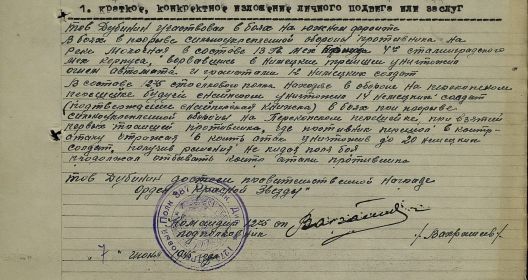 1. краткое, конкретное изложение личного подвига или заслуг
тов Дубинин участвовал в боях на южном фронте
В боях в прорыве сильноукрепленной обороны противника на
реке в составе 13 гв мех 4го сталинградского
мех корпуса, ворвавшись в немецкие траншеи уничтожил
огнем автомата и гранатами 12 немецких солдат
В составе стрелкового полка находясь в обороне на перекопском
перешейке ведя снайпером уничтожил 14 немецких солдат
(подтверждение снайперской книжка) в боях при прорыве
сильноукрепленной обороны на Перекопском перешейке, при взятии
первых траншей противника, где противник перешел в контр-
атаку отражая контр атак уничтожив до 20 немецких
солдат, получив ранения не кидая поля боя
продолжал отбивать контр атаки противника
тов Дубинин достоин правительственной награде
Орден "Красной Звезды"
Командир сп
подполковник /Вахрашев/
"7" июня